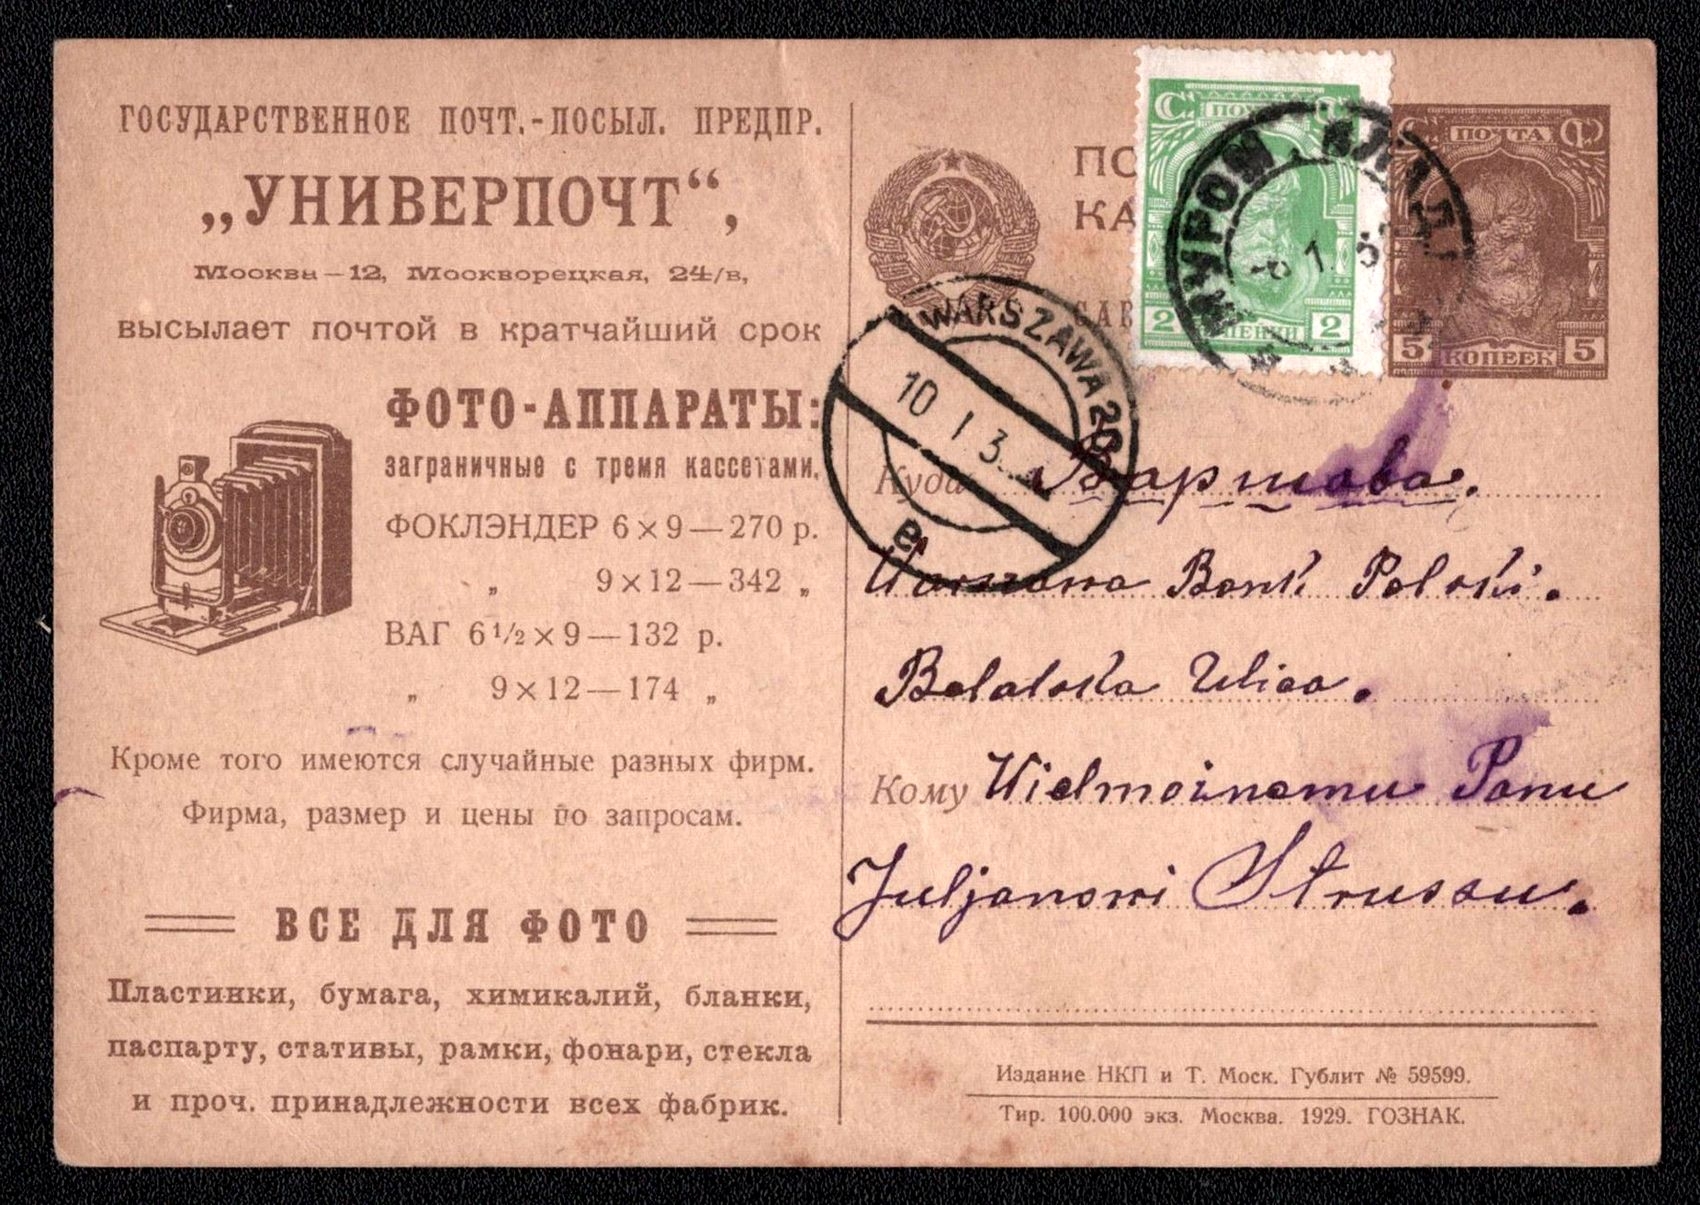 ГОСУДАРСТВЕННОЕ ПОЧТ.-ПОСЫЛ. ПРЕДПР.
„УНИВЕРПОЧТ“,
Москва—12, Москворецкая, 24/в,
высылает почтой в кратчайший срок
ФОТО-АППАРАТЫ:
заграничные с тремя кассетами.
ФОКЛЭНДЕР 6×9—270 р.
„ 9×12—342 „
ВАГ 6½×9—132 р.
„ 9×12—174 „
Кроме того имеются случайные разных фирм.
Фирма, размер и цены по запросам.
ВСЕ ДЛЯ ФОТО
Пластинки, бумага, химикалий, бланки,
паспарту, стативы, рамки, фонари, стекла
и проч. принадлежности всех фабрик.
ПО
КА
CAR
ПОЧТА
2 2
МУРОМ
ПОЧТА
5 КОПЕЕК 5
WARSZAWA 20
10 I 3
e
Куда Варшава.
Warszawa Bank Polski.
Belalska Ulica.
Кому Wielmoinemu Panu
Juljanowi Strussu.
Издание НКП и Т. Моск. Гублит № 59599.
Тир. 100.000 экз. Москва. 1929. ГОЗНАК.